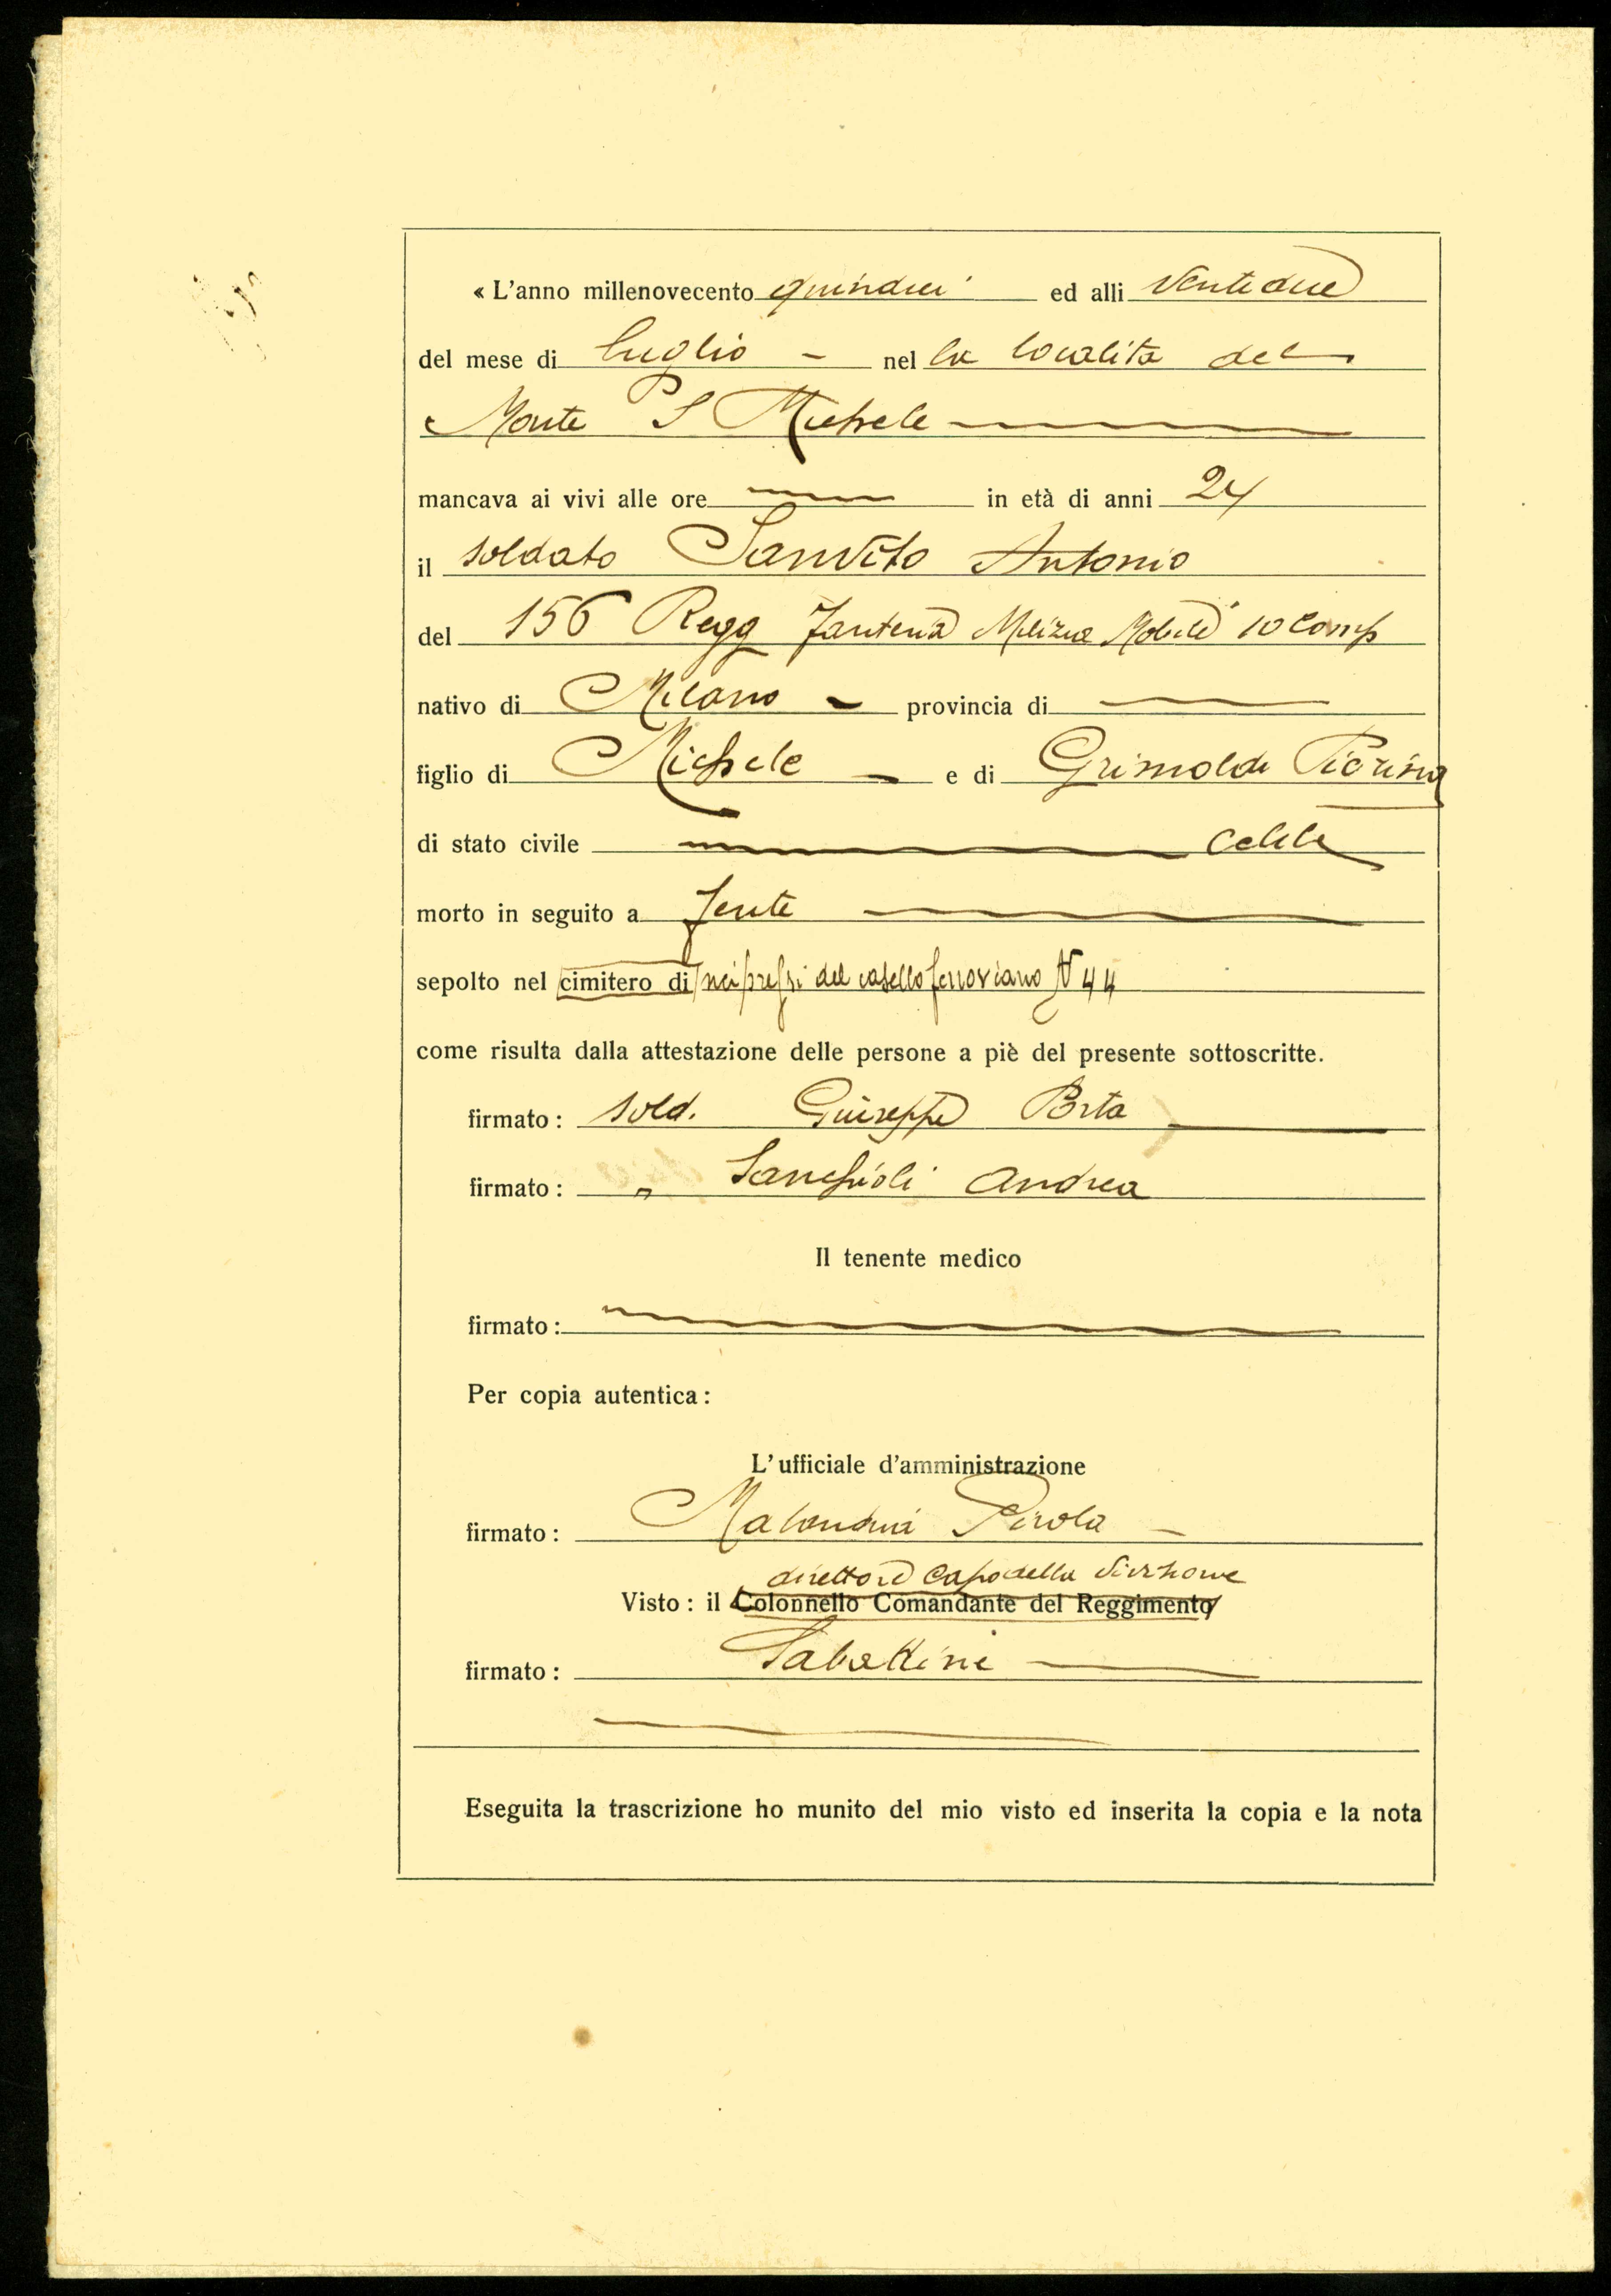 « L'anno millenovecento quindici ed alli ventidue
del mese di luglio - nel la località del
Monte S Michele
mancava ai vivi alle ore in età di anni 24
il soldato Sanvito Antonio
del 156 Regg Fanteria Milizia Mobile 10 Comp
nativo di Milano - provincia di
figlio di Michele - e di Grimoldi Pierina
di stato civile celibe
morto in seguito a ferite
sepolto nel cimitero di nei pressi del casello ferroviario N 44
come risulta dalla attestazione delle persone a piè del presente sottoscritte.
firmato : sold. Giuseppe Porta
firmato : " Andrea
Il tenente medico
firmato :
Per copia autentica :
L'ufficiale d'amministrazione
firmato : Pirola -
direttore capo della divisione
Visto : il Colonnello Comandante del Reggimento
firmato : Sabattini
Eseguita la trascrizione ho munito del mio visto ed inserita la copia e la nota